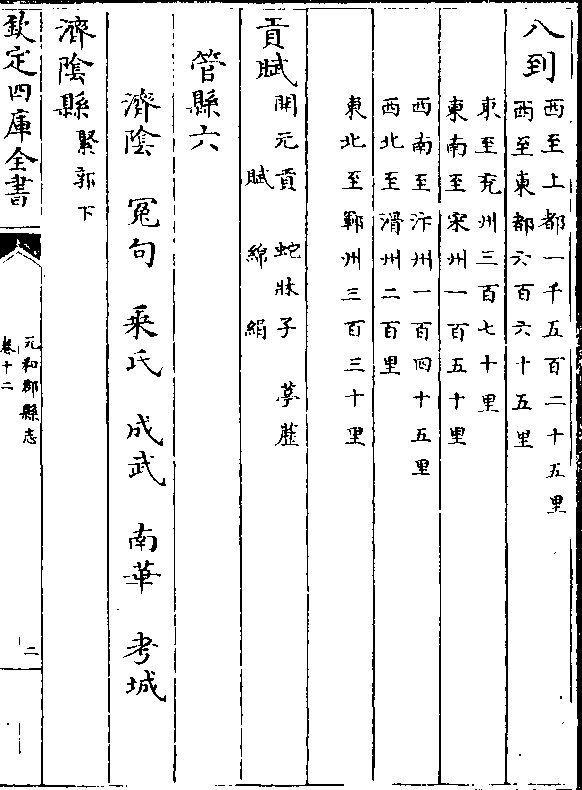 八到
西至上都一千五百二十五里
西至東都六百六十五里
東至兖州三百七十里
東南至宋州一百五十里
西南至汴州一百四十五里
西北至滑州二百里
東北至鄆州三百三十里
貢賦
開元貢 蛇牀子 葶藶
賦 綿 絹
管縣六
濟陰 冤句 乘氏 成武 南華 考城
濟陰縣 緊郭下
欽定四庫全書
元和郡縣志
卷十二
二